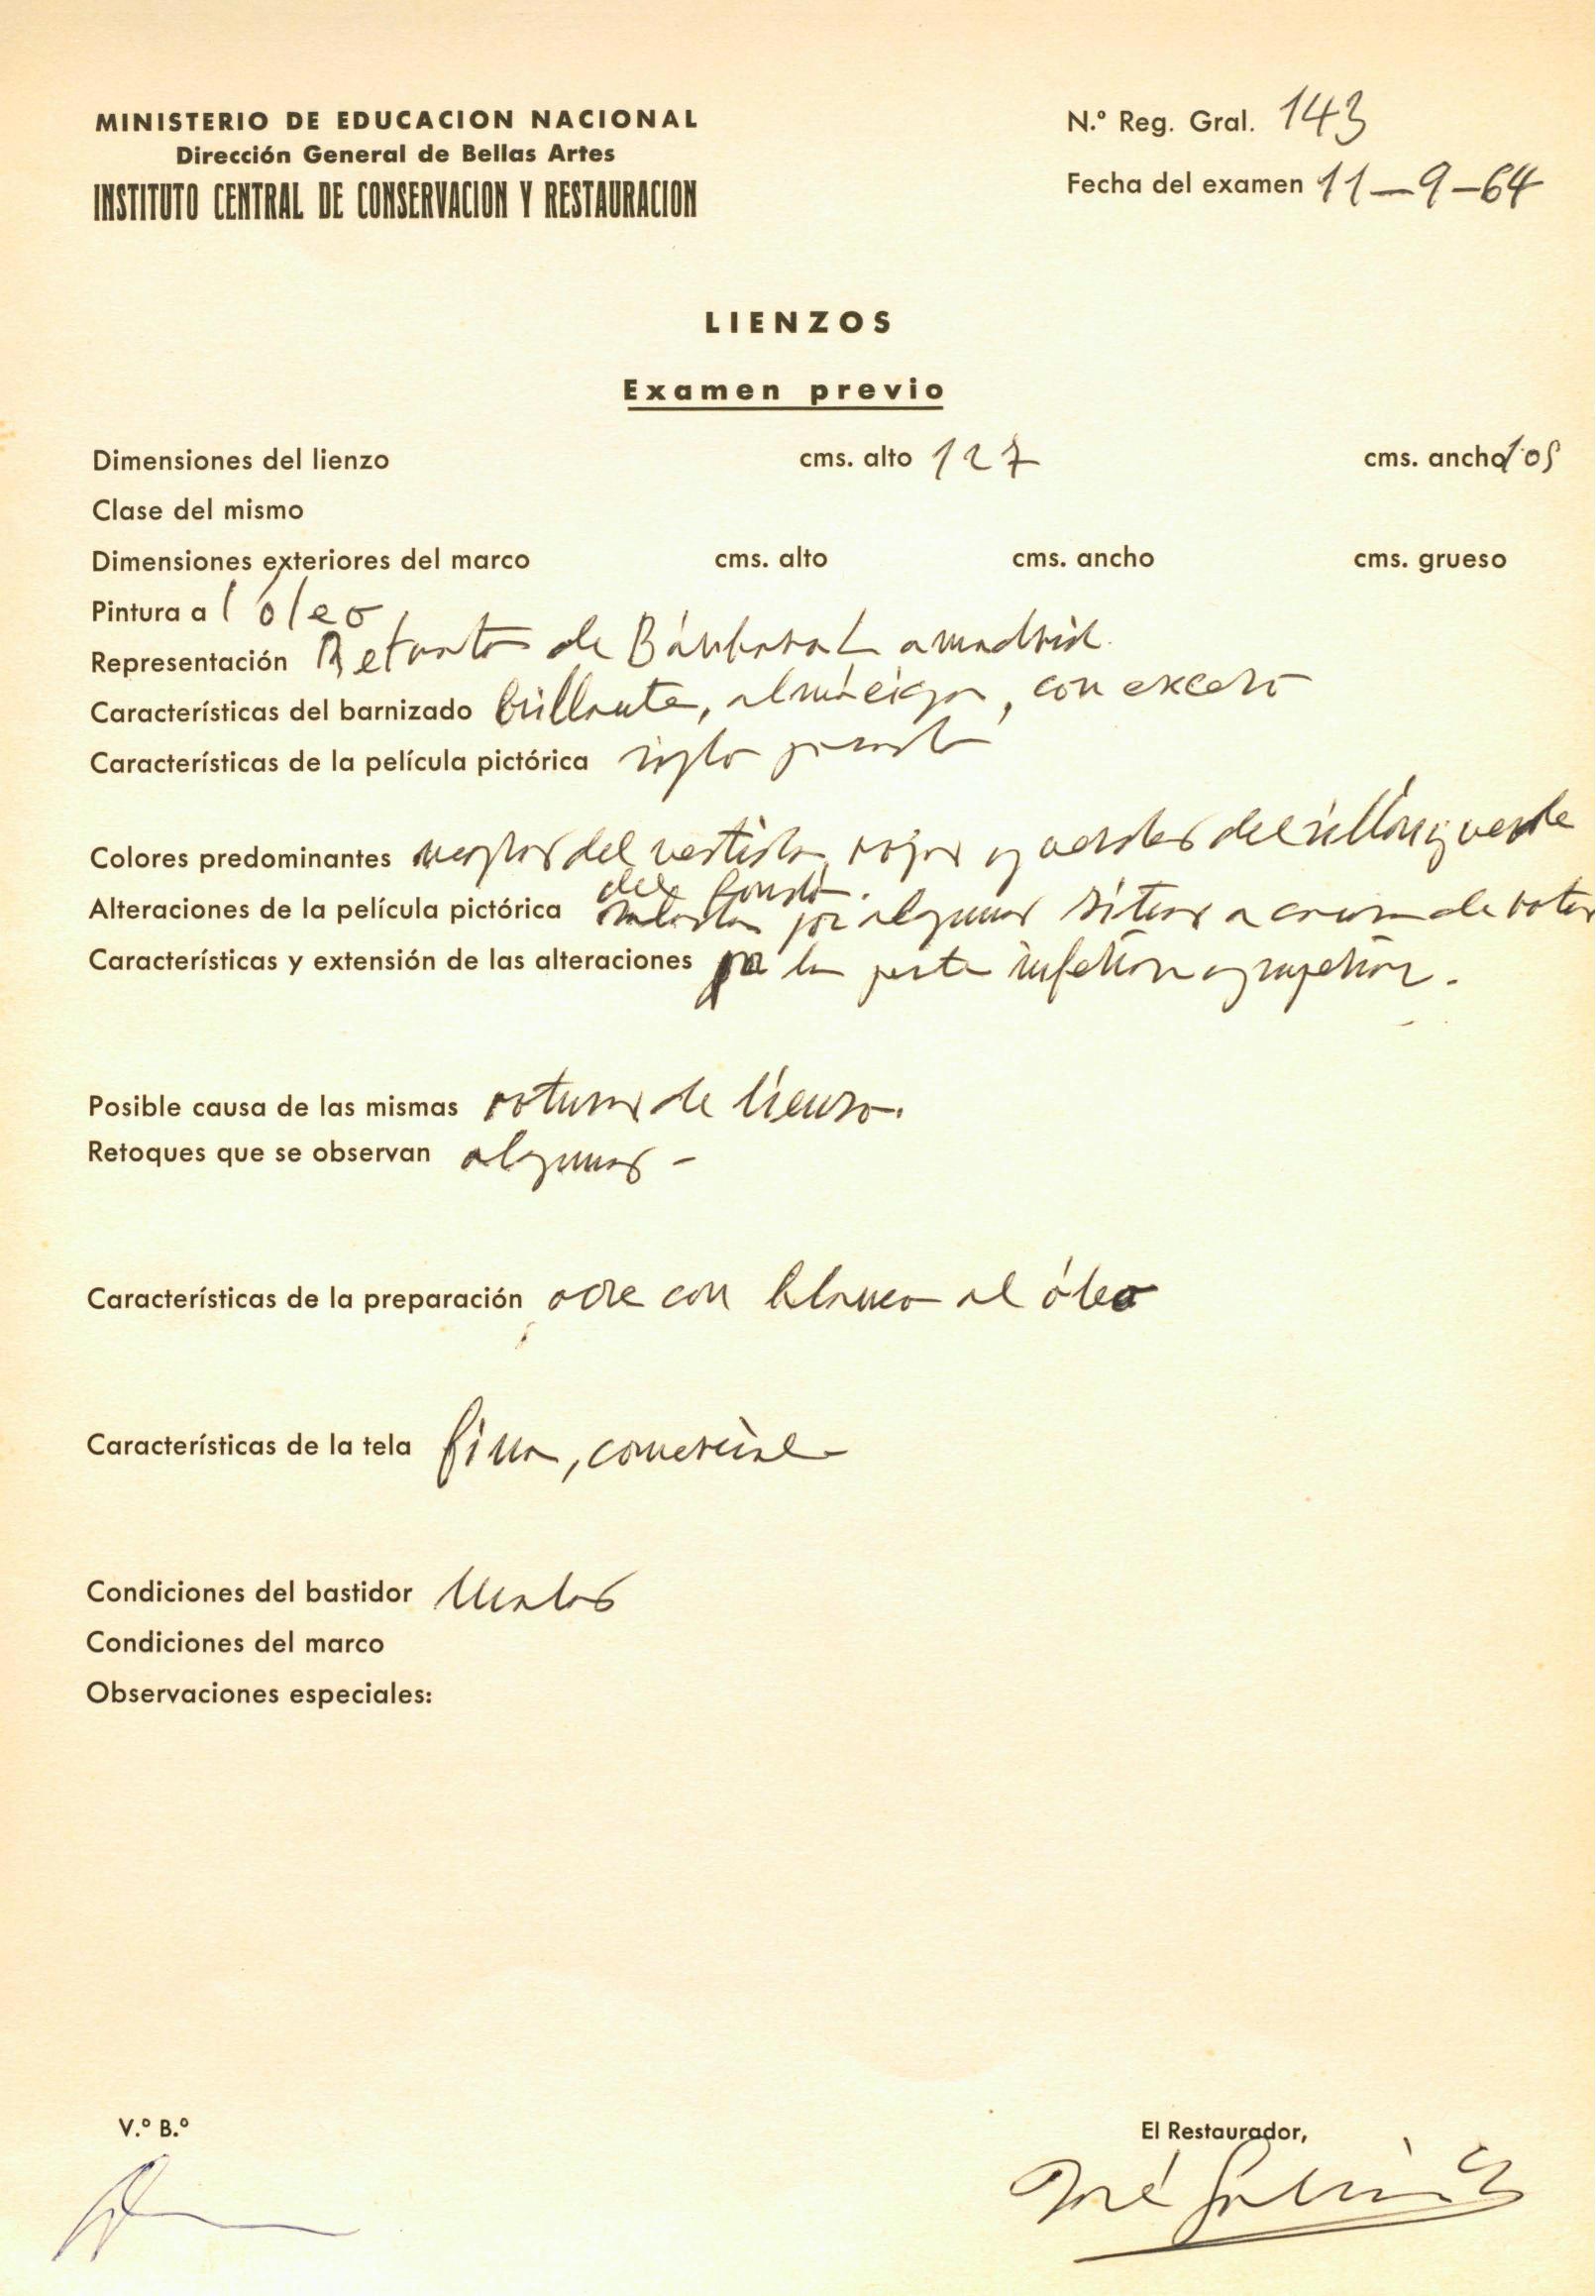 MINISTERIO DE EDUCACION NACIONAL
Dirección General de Bellas Artes
INSTITUTO CENTRAL DE CONSERVACION Y RESTAURACION
N.º Reg. Gral. 143
Fecha del examen 11-9-64
LIENZOS
Examen previo
Dimensiones del lienzo cms. alto 127 cms. ancho 105
Clase del mismo
Dimensiones exteriores del marco cms. alto cms. ancho cms. grueso
Pintura al óleo
Representación Retrato de Bárbara Lamadrid.
Características del barnizado brillante, almáciga, con exceso
Características de la película pictórica siglo pasado
Colores predominantes negros del vestido, rojos y verdes del sillón y verde
del fondo.
Alteraciones de la película pictórica por algunos sitios a causa de rotos
Características y extensión de las alteraciones por la parte inferior y superior.
Posible causa de las mismas roturas de lienzo.
Retoques que se observan algunos -
Características de la preparación ocre con blanco al óleo
Características de la tela fina, comercial
Condiciones del bastidor Malas
Condiciones del marco
Observaciones especiales:
V.º B.º
El Restaurador,
José